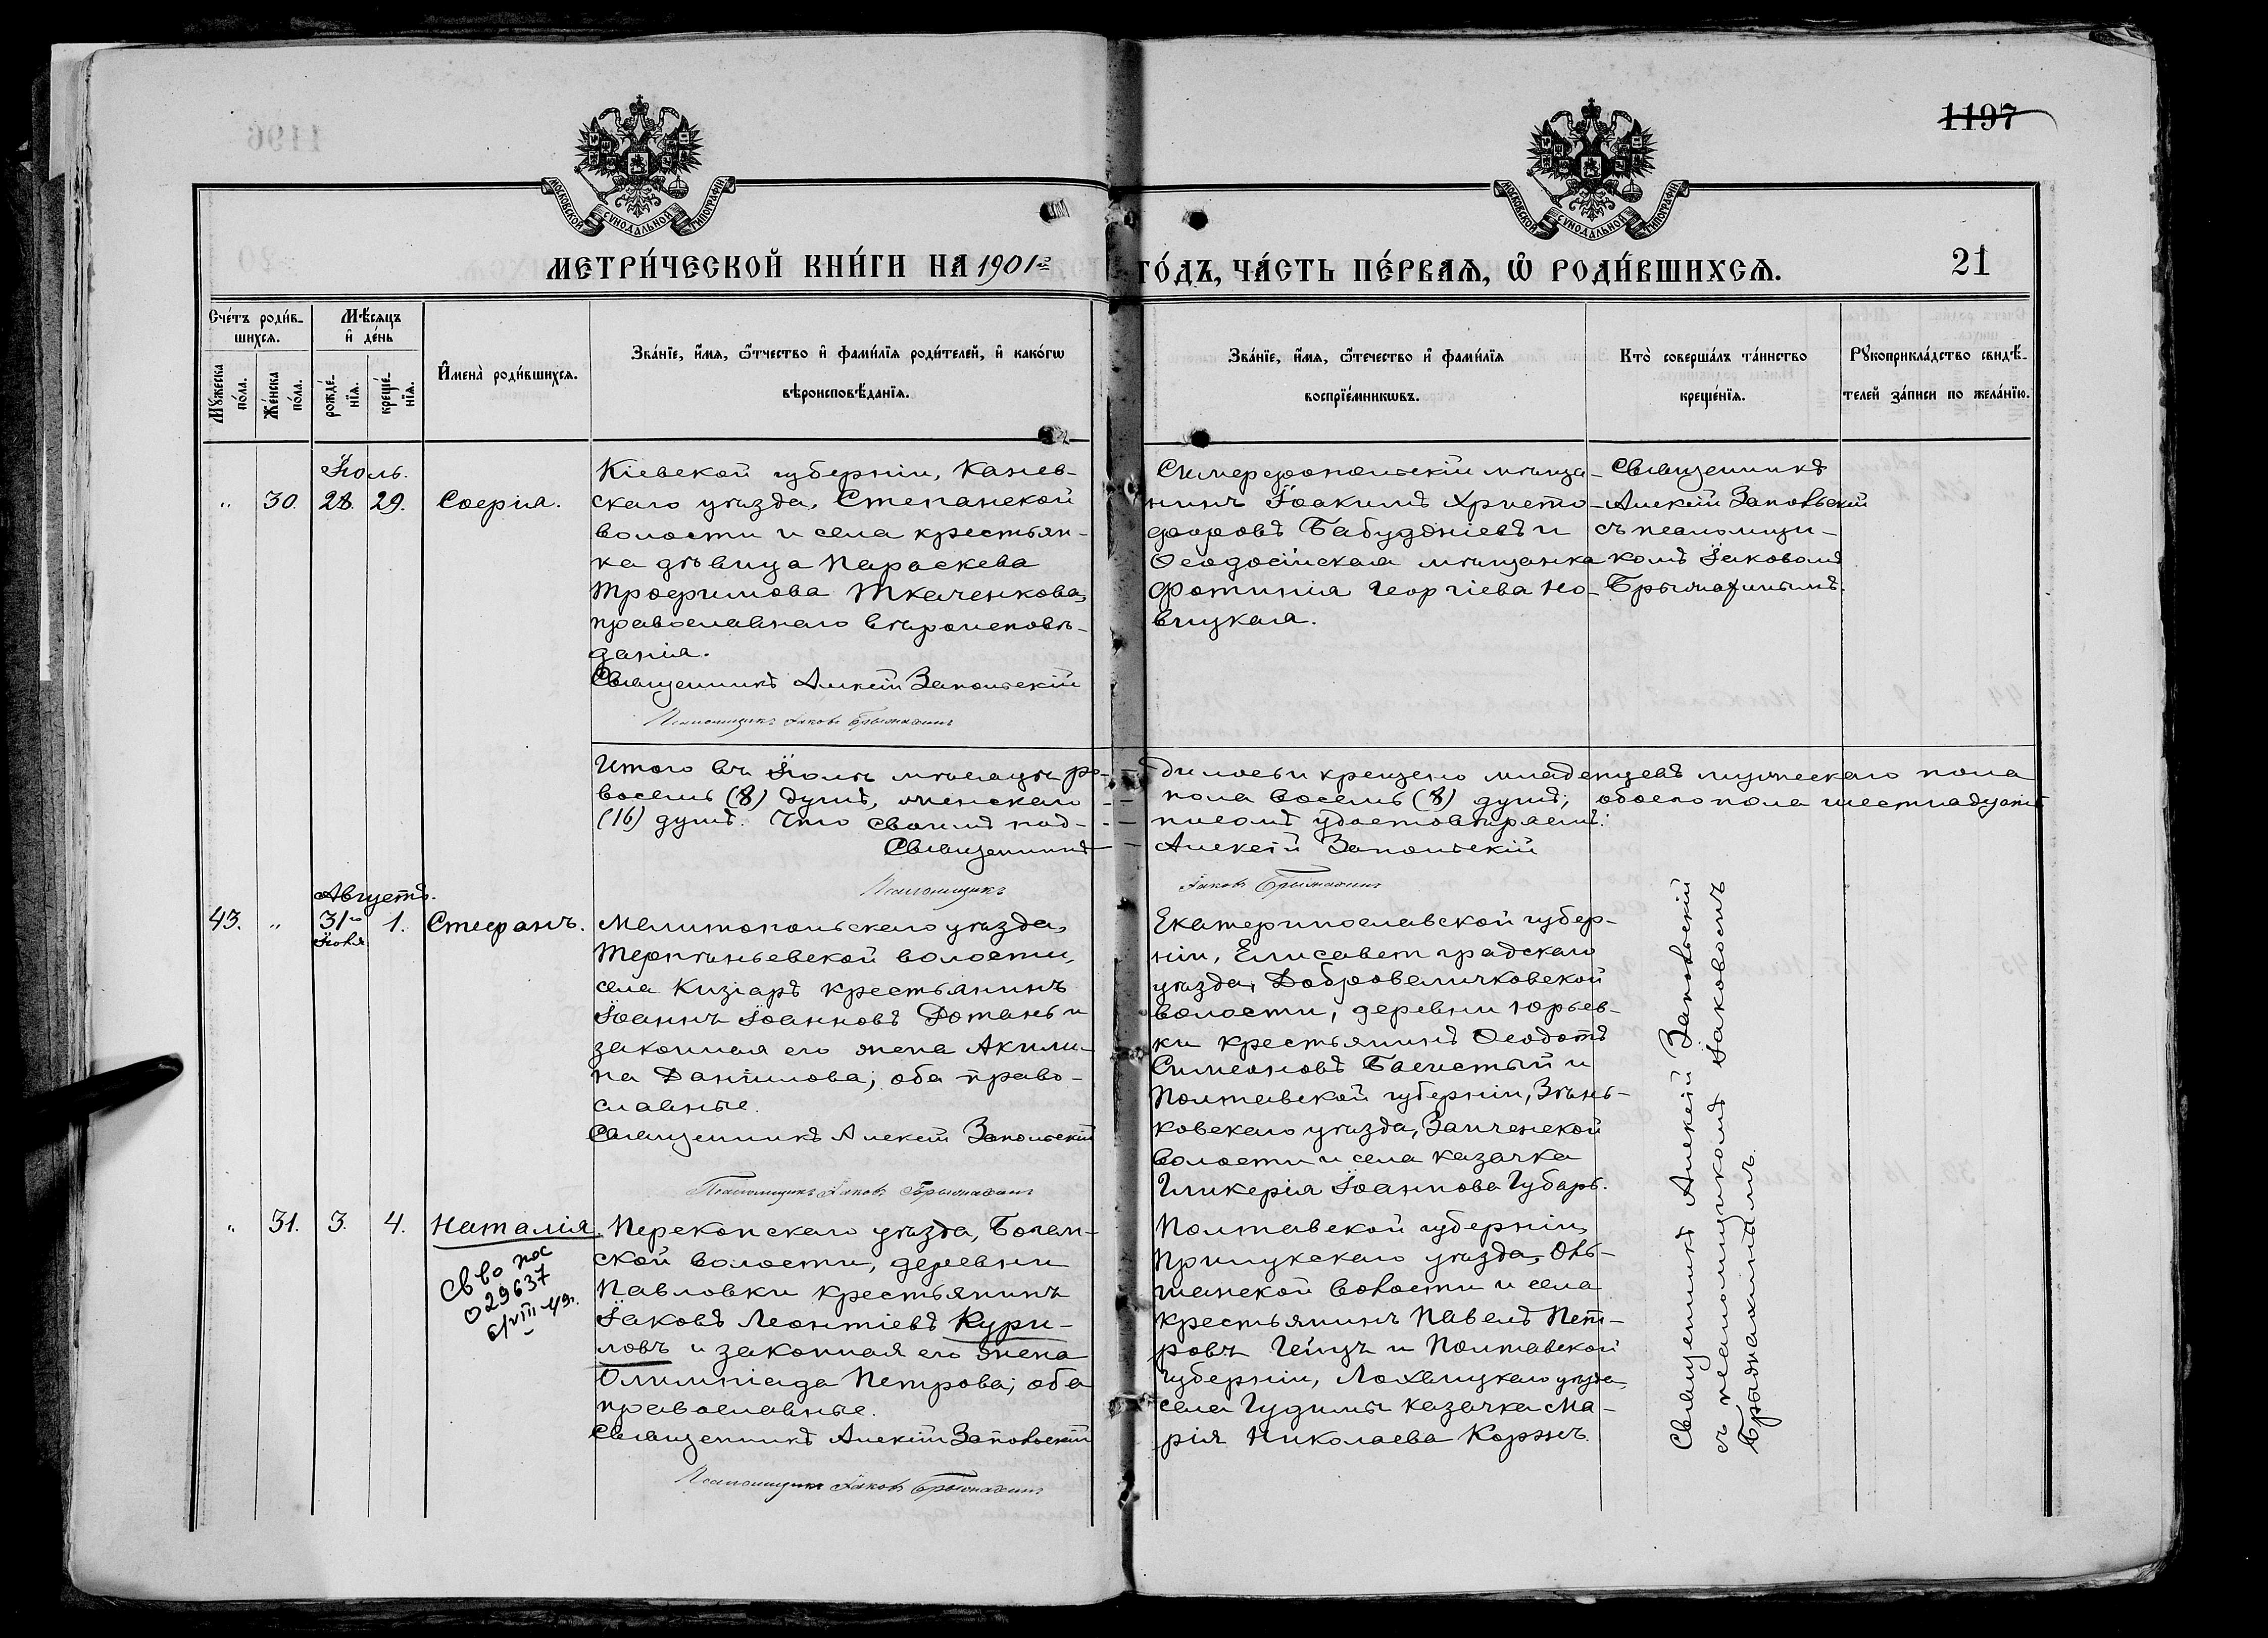 1197
МОСКОВСКОЙ СѴНОДАЛЬНОЙ ТИПОГРАФІИ
МОСКОВСКОЙ СѴНОДАЛЬНОЙ ТИПОГРАФІИ
МЕТРИ́ЧЕСКОЙ КНИ́ГИ НА 1901 го
ГО́ДЪ, ЧА́СТЬ ПЕ́РВАѦ, Ѡ РОДИ́ВШИХСѦ.
21
Сче́тъ роди́в-
шихсѧ.
Мꙋ́жеска по́ла.
Же́нска по́ла.
Мѣ́сѧцъ
и҆ де́нь
рожде́-
нїѧ.
креще́-
нїѧ.
И҆мена̀ роди́вшихсѧ.
Зва́нїе, и҆́мѧ, ѻ҆́тчество и҆ фами́лїѧ роди́телей, и҆ како́гѡ
вѣроисповѣ́данїѧ.
Зва́нїе, и҆́мѧ, ѻ҆те́чество и҆ фами́лїѧ
воспрїе́мникѡвъ.
Кто̀ соверша́лъ та́инство
креще́нїѧ.
Рꙋкоприкла́дство свидѣ́-
телей за́писи по жела́нїю.
Іюль.
" 30. 28. 29. Софія.
Кіевской губерніи, Канев-
скаго уѣзда, Степанской
волости и села крестьян-
ка дѣвица Параскева
Трофимова Ткаченкова,
православнаго вѣроисповѣ-
данія.
Священникъ Алексій Запольскій
Псаломщикъ Іаковъ Брыжахинъ
Симферопольскій мѣща-
нинъ Іоакимъ Христо-
форовъ Бабуджіевъ и
Ѳеодосійская мѣщанка
Фотинія Георгіева Но-
вицкая.
Священникъ
Алексій Запольскій
съ псаломщи-
комъ Іаковомъ
Брыжахинымъ.
Итого въ Іюлѣ мѣсяцѣ ро- дилось и крещено младенцевъ мужескаго пола
восемь (8) душъ, женскаго пола восемь (8) душъ; обоего пола шестнадцать
(16) душъ. Что своимъ под- писомъ удостовѣряемъ:
Священникъ Алексій Запольскій
Псаломщикъ Іаковъ Брыжахинъ
Августъ.
43. " 31го 1. Стефанъ.
Іюля
Мелитопольскаго уѣзда,
Терпѣньевской волости,
села Кизіаръ крестьянинъ
Іоаннъ Іоанновъ Ротань и
законная его жена Акили-
на Даніилова; оба право-
славные.
Священникъ Алексій Запольскій
Псаломщикъ Іаковъ Брыжахинъ
Екатеринославской губер-
ніи, Елисаветградскаго
уѣзда, Добровеличковской
волости, деревни Юрьев-
ки крестьянинъ Ѳеодотъ
Симеоновъ и
Полтавской губерніи, Зѣнь-
ковскаго уѣзда,
волости и села казачка
Гликерія Іоаннова Губарь.
Священникъ Алексій Запольскій
съ псаломщикомъ Іаковомъ
Брыжахинымъ.
" 31. 3. 4. Наталія.
Св во
029637
6/VIII 49г.
Перекопскаго уѣзда, Богем-
ской волости, деревни
Павловки крестьянинъ
Іаковъ Леонтіевъ Кури-
ловъ и законная его жена
Олимпіада Петрова; оба
православные.
Священникъ Алексій Запольскій
Псаломщикъ Іаковъ Брыжахинъ
Полтавской губерніи,
Прилукскаго уѣзда, Оль-
шанской волости и села
крестьянинъ Павелъ Пет-
ровъ и Полтавской
губерніи, Лохвицкаго уѣзда,
села Гудимы казачка Ма-
рія Николаева Коржъ.